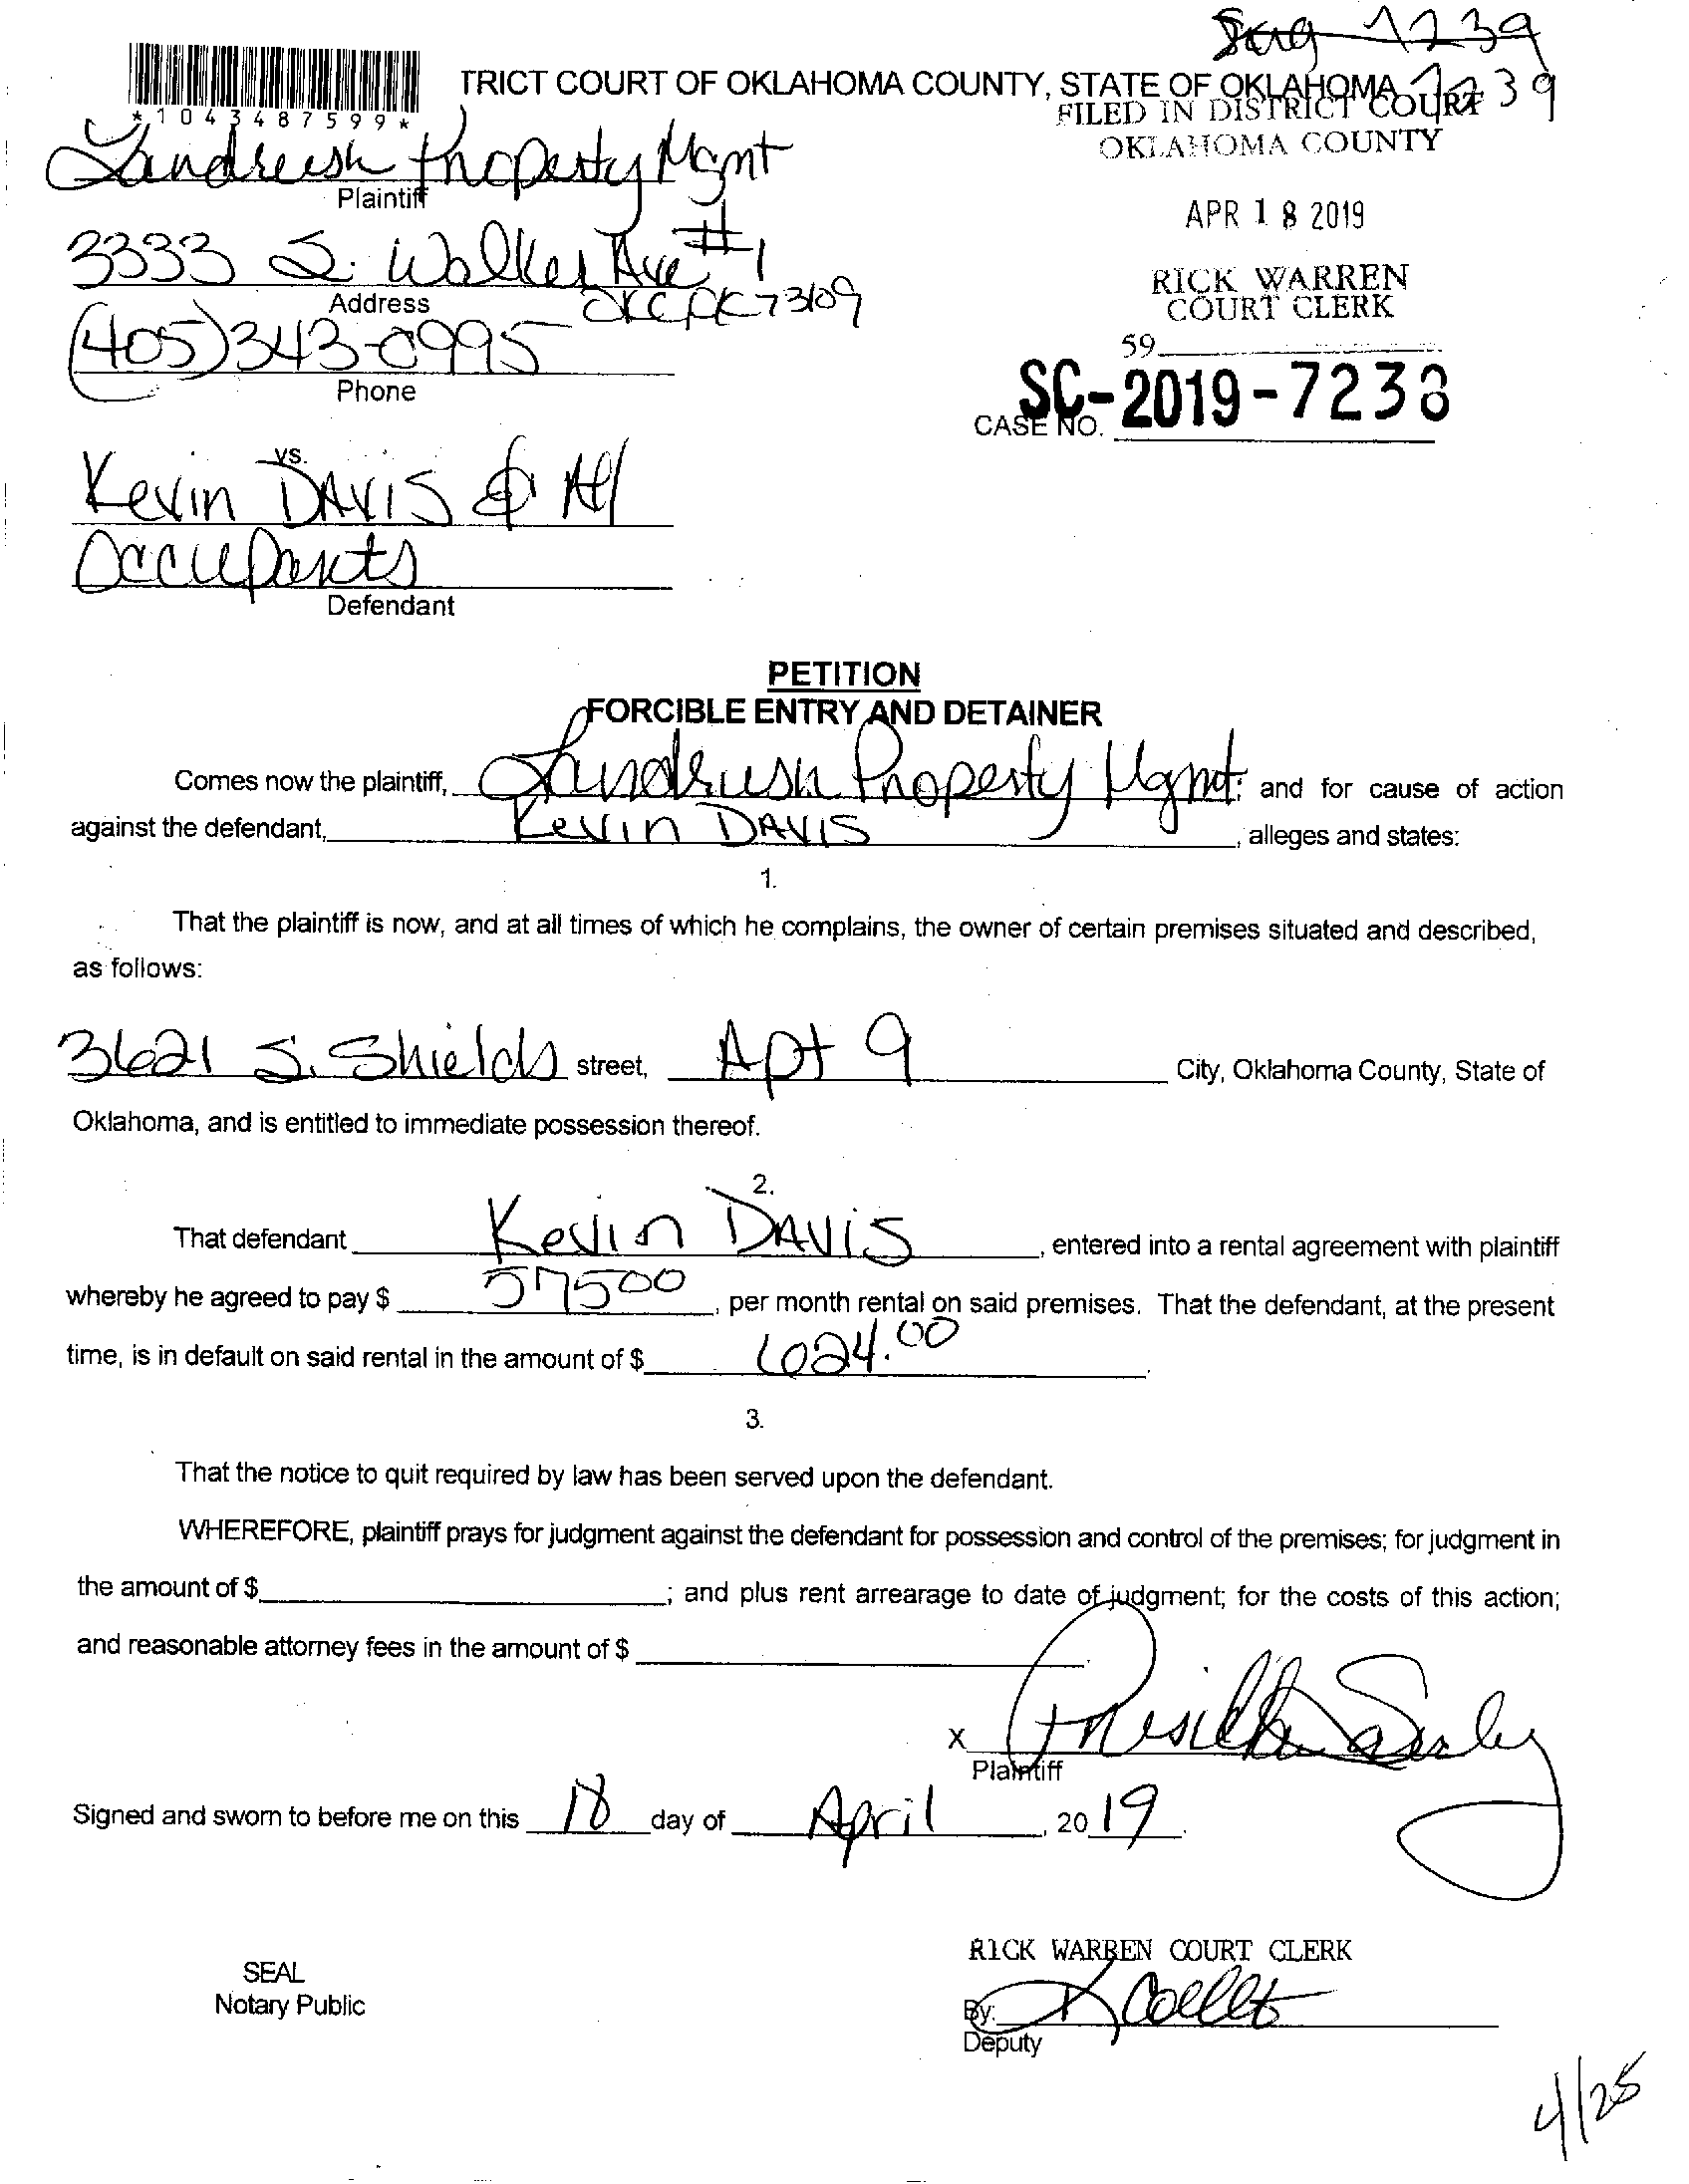 1239
TRICT COURT OF OKLAHOMA COUNTY, STATE OF OKLAHOMA
1239
FILED IN DISTRICT COURT
OKLAHOMA COUNTY
*1043487599*
Landrush Property Mgmt
Plaintiff
APR 18 2019
3333 S. Walker Ave #1
OKC OK 73109
Address
RICK WARREN
COURT CLERK
(405) 343-0995
Phone
59
CASE NO. SC-2019-7238
vs.
Kevin DAVIS & All
Occupants
Defendant
PETITION
FORCIBLE ENTRY AND DETAINER
Comes now the plaintiff, Landrush Property Mgmt. and for cause of action
against the defendant, Kevin DAVIS, alleges and states:
1.
That the plaintiff is now, and at all times of which he complains, the owner of certain premises situated and described,
as follows:
3621 S. Shields street, Apt 9 City, Oklahoma County, State of
Oklahoma, and is entitled to immediate possession thereof.
2.
That defendant Kevin DAVIS, entered into a rental agreement with plaintiff
whereby he agreed to pay $ 57500, per month rental on said premises. That the defendant, at the present
time, is in default on said rental in the amount of $ 624.00.
3.
That the notice to quit required by law has been served upon the defendant.
WHEREFORE, plaintiff prays for judgment against the defendant for possession and control of the premises; for judgment in
the amount of $ ; and plus rent arrearage to date of judgment; for the costs of this action;
and reasonable attorney fees in the amount of $
X
Plaintiff
Signed and sworn to before me on this 18 day of April, 20 19.
RICK WARREN COURT CLERK
SEAL
Notary Public
By:
Deputy
4/25